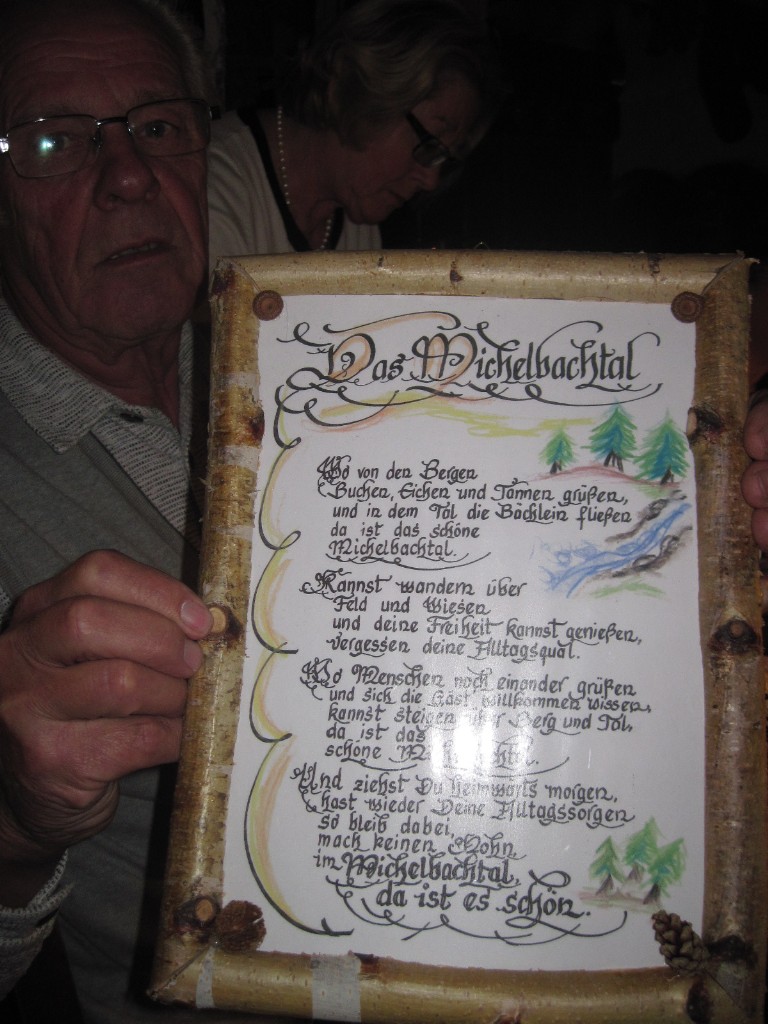 Das Michelbachtal
Wo von den Bergen
Buchen, Eichen und Tannen grüßen,
und in dem Tal die Bächlein fließen
da ist das schöne
Michelbachtal.
Kannst wandern über
Feld und Wiesen
und deine Freiheit kannst genießen,
vergessen deine Alltagsqual.
Wo Menschen noch einander grüßen
und sich die Gäst willkommen wissen,
kannst steigen über Berg und Tal,
da ist das
schöne Michelbachtal.
Und ziehst Du heimwärts morgen,
hast wieder Deine Alltagssorgen
so bleib dabei,
mach keinen Hohn,
im Michelbachtal,
da ist es schön.